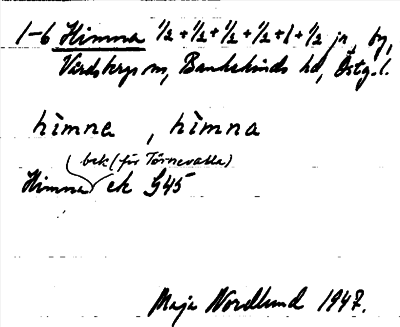 1–6 Himna ½+½+½+½+1+½ ja, by,
Vårdsbergs sn, Bankekinds hd, Östg.l.
hìmna , hìmna
bek (för Törnevalla)
Himna ek G45
Maja Nordlund 1947.